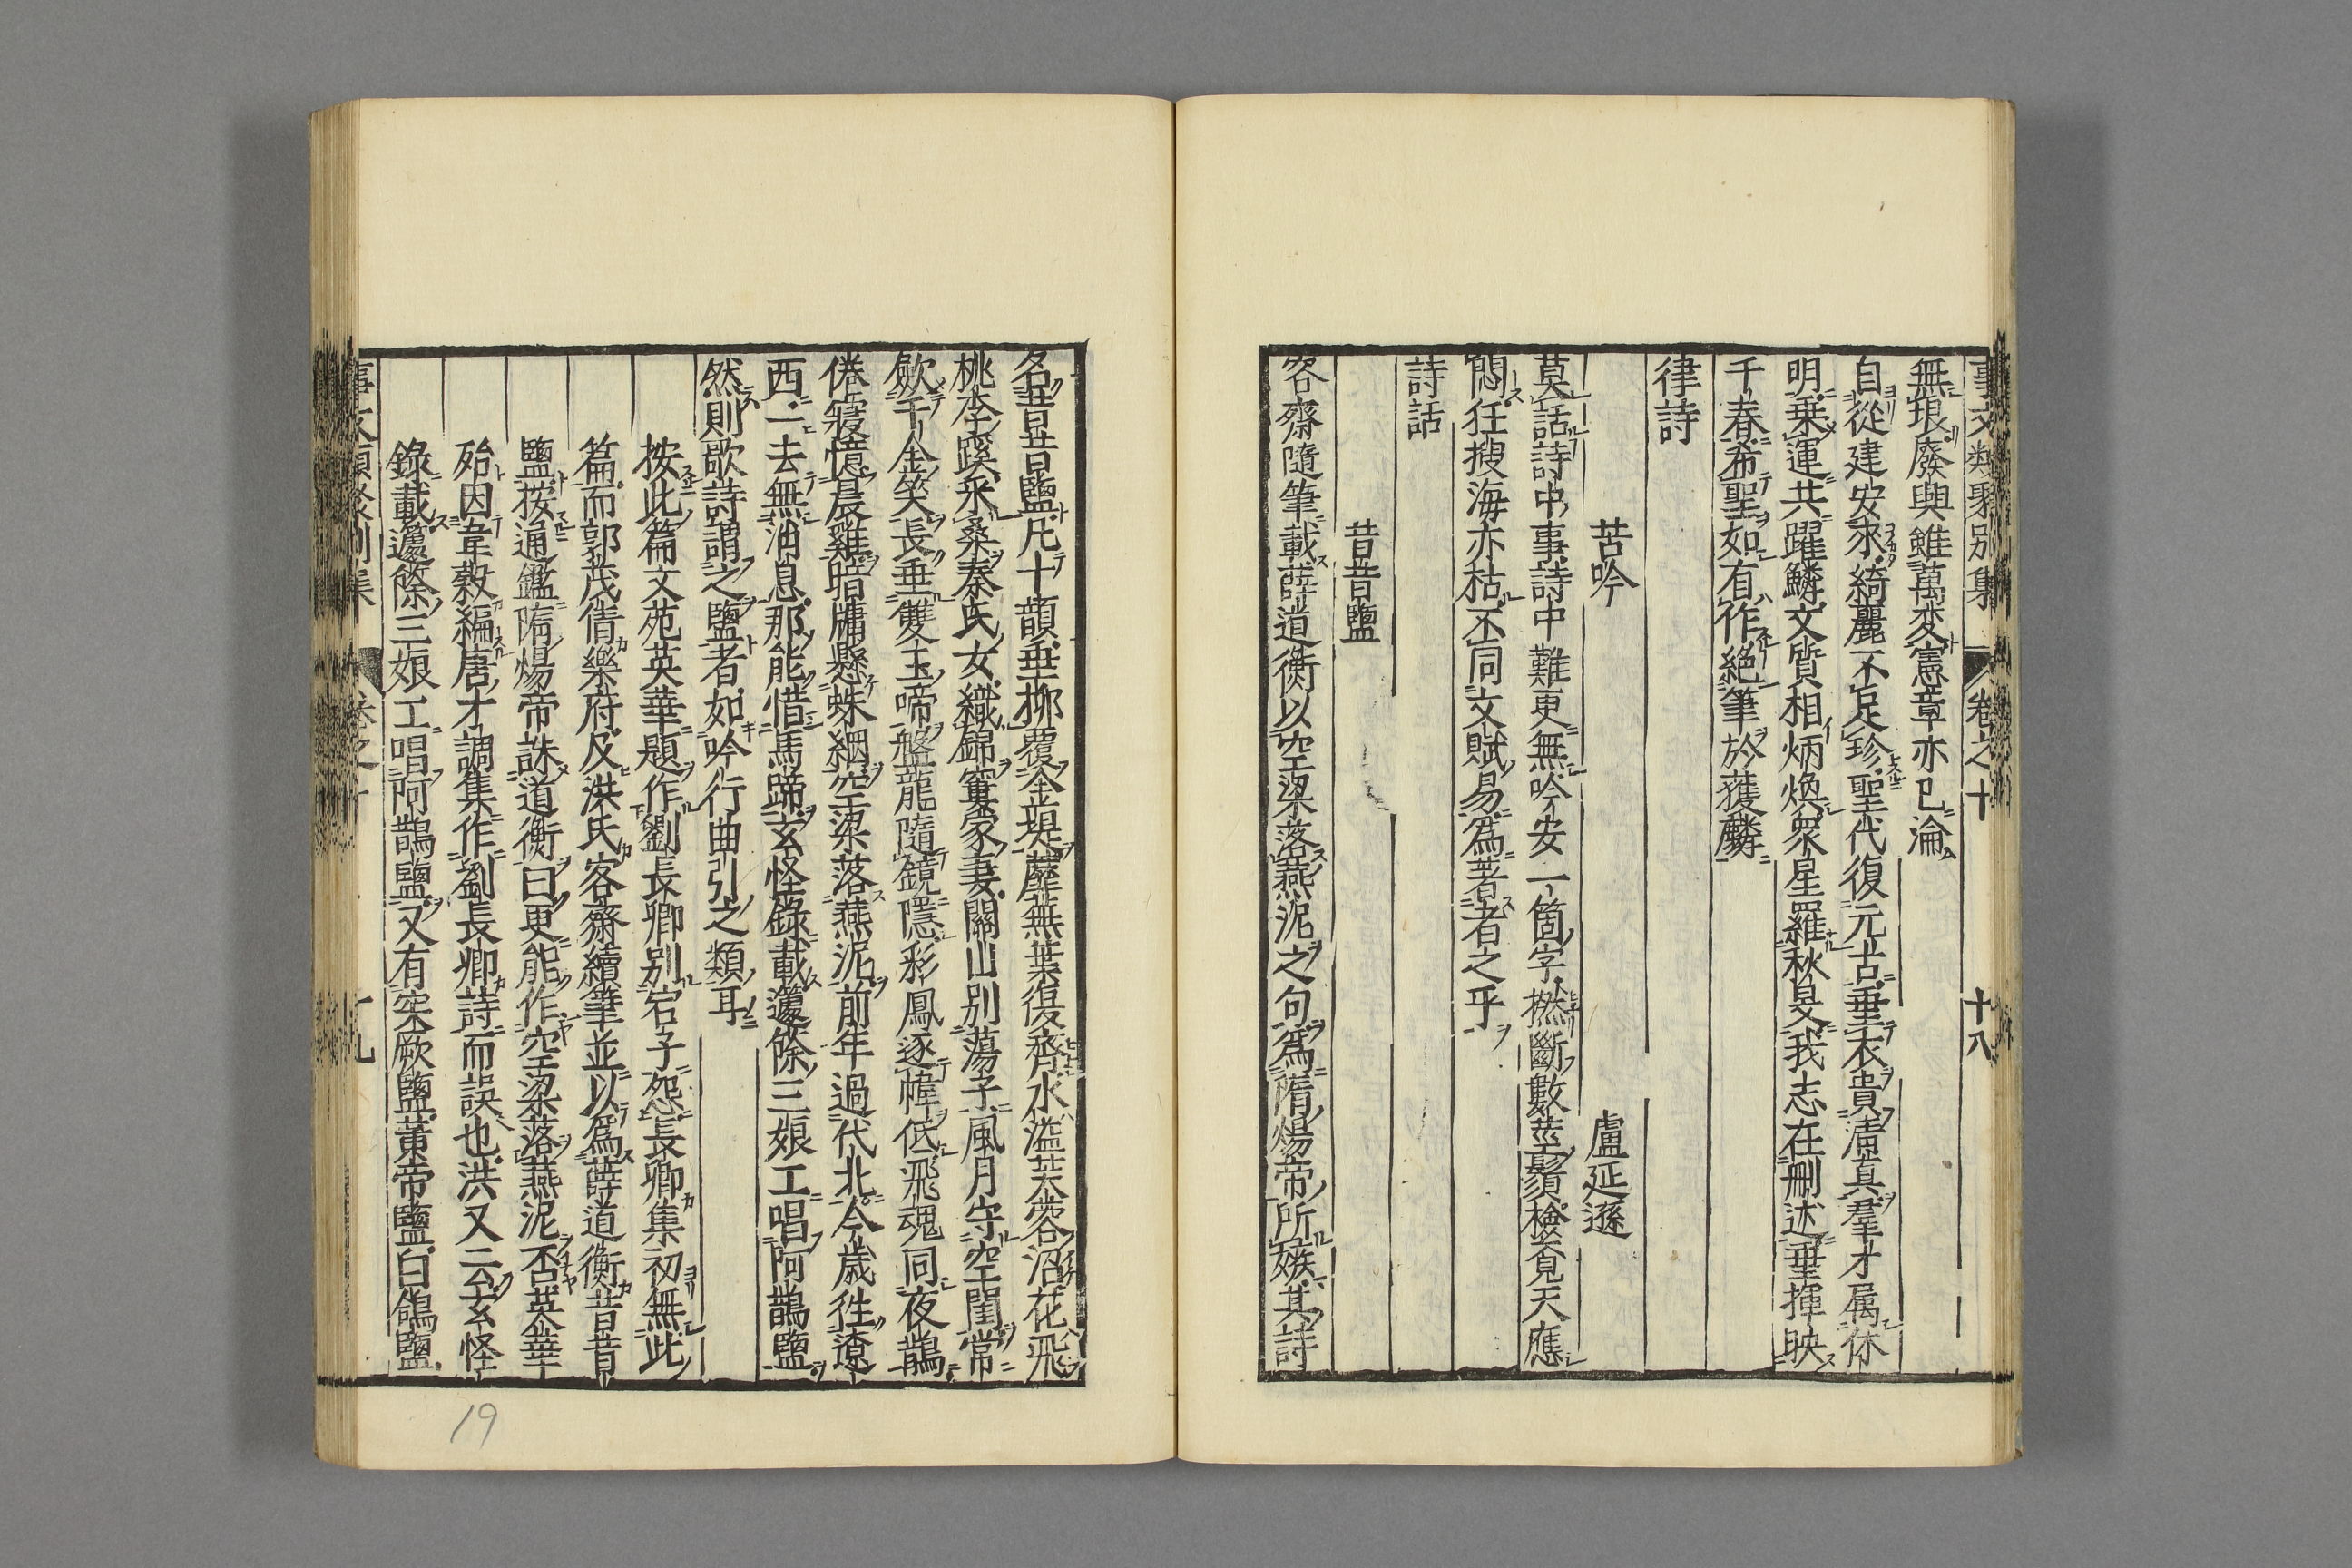 事文類聚別集 卷之十 十八
無垠廢興雖萬变憲章亦已淪
自從建安來綺麗不足珍聖代復元古垂衣貴清真羣才属休
明乗運共躍鱗文質相炳煥衆星羅秋旻我志在刪述垂揮映
千春希聖如有作絕筆於獲麟
律詩
苦吟 盧延遜
莫話詩中事詩中難更無吟安一箇字撚斷數莖鬚檢覓天應
悶狂搜海亦枯不同文賦易爲著者之乎
詩話
昔昔鹽
容齋隨筆載薛道衡以空梁落燕泥之句爲隋煬帝所嫉其詩
名昔昔鹽凡十韻垂柳覆金堤蘼蕪葉復齊水溢芙蓉沼花飛
桃李蹊采桑秦氏女織錦竇家妻關山別蕩子風月守空閨常
歛千金笑長垂雙玉啼盤龍隨鏡隱彩鳳逐帷低飛魂同夜鵲
倦寢憶晨雞暗牖懸蛛網空梁落燕泥前年過代北今歲徃遼
西一去無消息那能惜馬蹄玄怪錄載籧篨三娘工唱阿鵲鹽
然則歌詩謂之鹽者如吟行曲引之類耳
按此篇文苑英華題作劉長卿別宕子怨長卿集初無此
篇而郭茂倩樂府及洪氏容齋續筆並以爲薛道衡昔昔
鹽按通鑑隋煬帝誅道衡曰更能作空梁落燕泥否英華
殆因韋縠編唐才調集作劉長卿詩而誤也洪又云玄怪
錄載籧篨三娘工唱阿鵲鹽又有突厥鹽黃帝鹽白鴿鹽
事文類聚別集 卷之十 十九
19